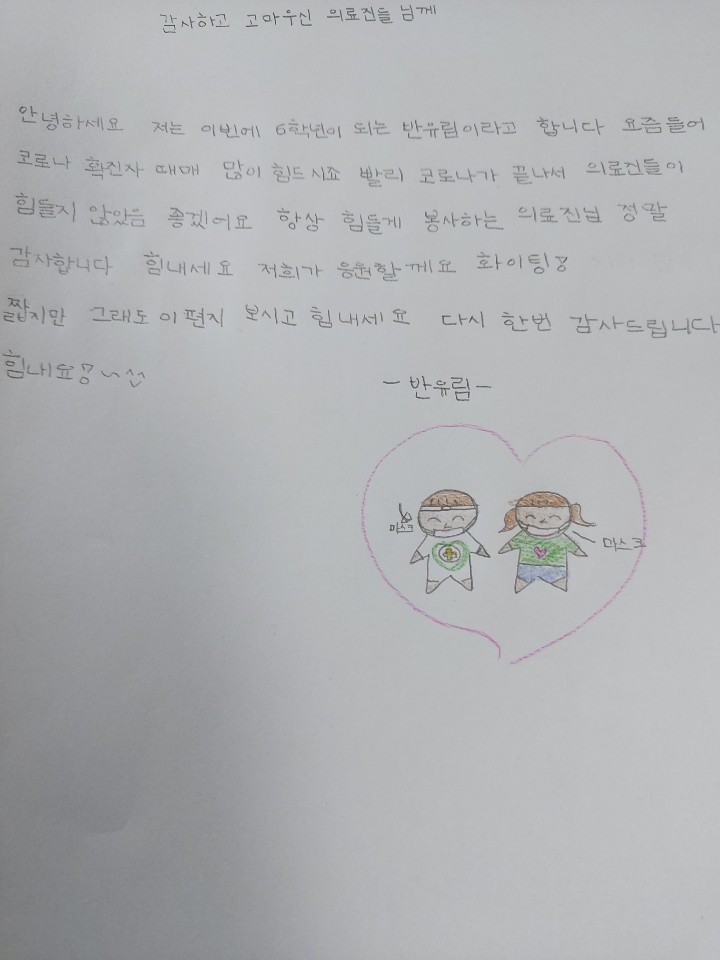 감사하고 고마우신 의료진들 님께
안녕하세요 저는 이번에 6학년이 되는 반유림이라고 합니다 요즘들어
코로나 확진자 때매 많이 힘드시죠 빨리 코로나가 끝나서 의료진들이
힘들지 않았음 좋겠어요 항상 힘들게 봉사하는 의료진님 정말
감사합니다 힘내세요 저희가 응원할께요 화이팅!
짧지만 그래도 이 편지 보시고 힘내세요 다시 한번 감사드립니다
힘내요! ~^^
- 반유림 -
마스크
마스크